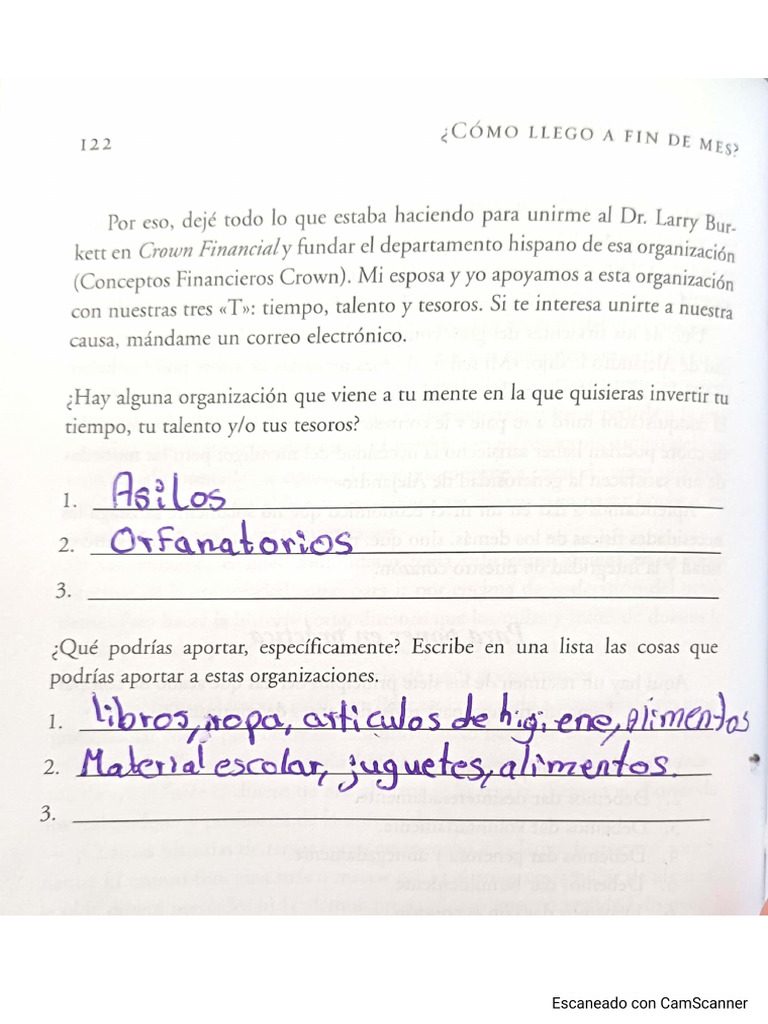 122
¿CÓMO LLEGO A FIN DE MES?
Por eso, dejé todo lo que estaba haciendo para unirme al Dr. Larry Bur-
kett en Crown Financial y fundar el departamento hispano de esa organización
(Conceptos Financieros Crown). Mi esposa y yo apoyamos a esta organización
con nuestras tres «T»: tiempo, talento y tesoros. Si te interesa unirte a nuestra
causa, mándame un correo electrónico.
¿Hay alguna organización que viene a tu mente en la que quisieras invertir tu
tiempo, tu talento y/o tus tesoros?
1. Asilos
2. Orfanatorios
3.
¿Qué podrías aportar, específicamente? Escribe en una lista las cosas que
podrías aportar a estas organizaciones.
1. libros, ropa, artículos de higiene, alimentos
2. Material escolar, juguetes, alimentos.
3.
Escaneado con CamScanner